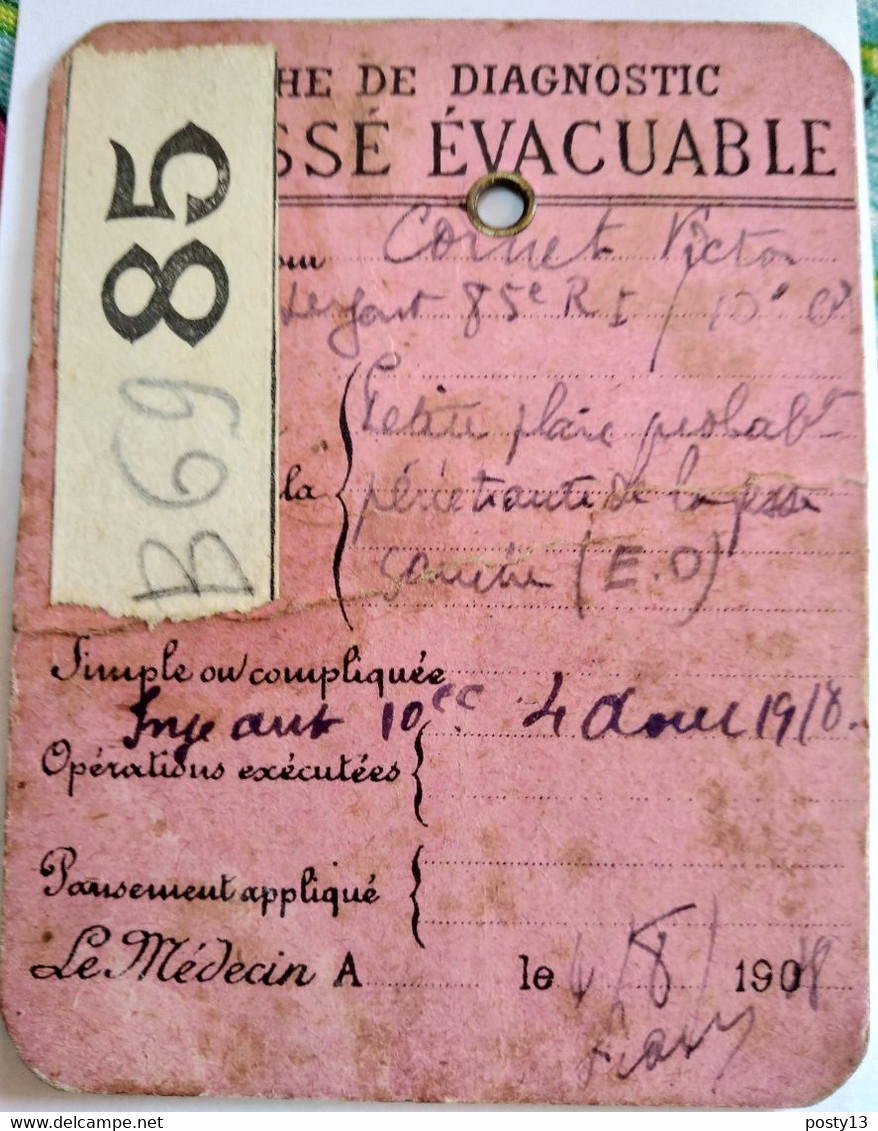 HE DE DIAGNOSTIC
SSÉ ÉVACUABLE
85
B69
om Cornet Victor
Sergent 85e RI 10e C
Petite plaie probabt
la pénétrante de la fesse
gauche (E.O)
Simple ou compliquée
Inj ant 10cc 4 Aout 1918
Opérations exécutées
Pansement appliqué
Le Médecin A le 4/8/ 1918
posty13